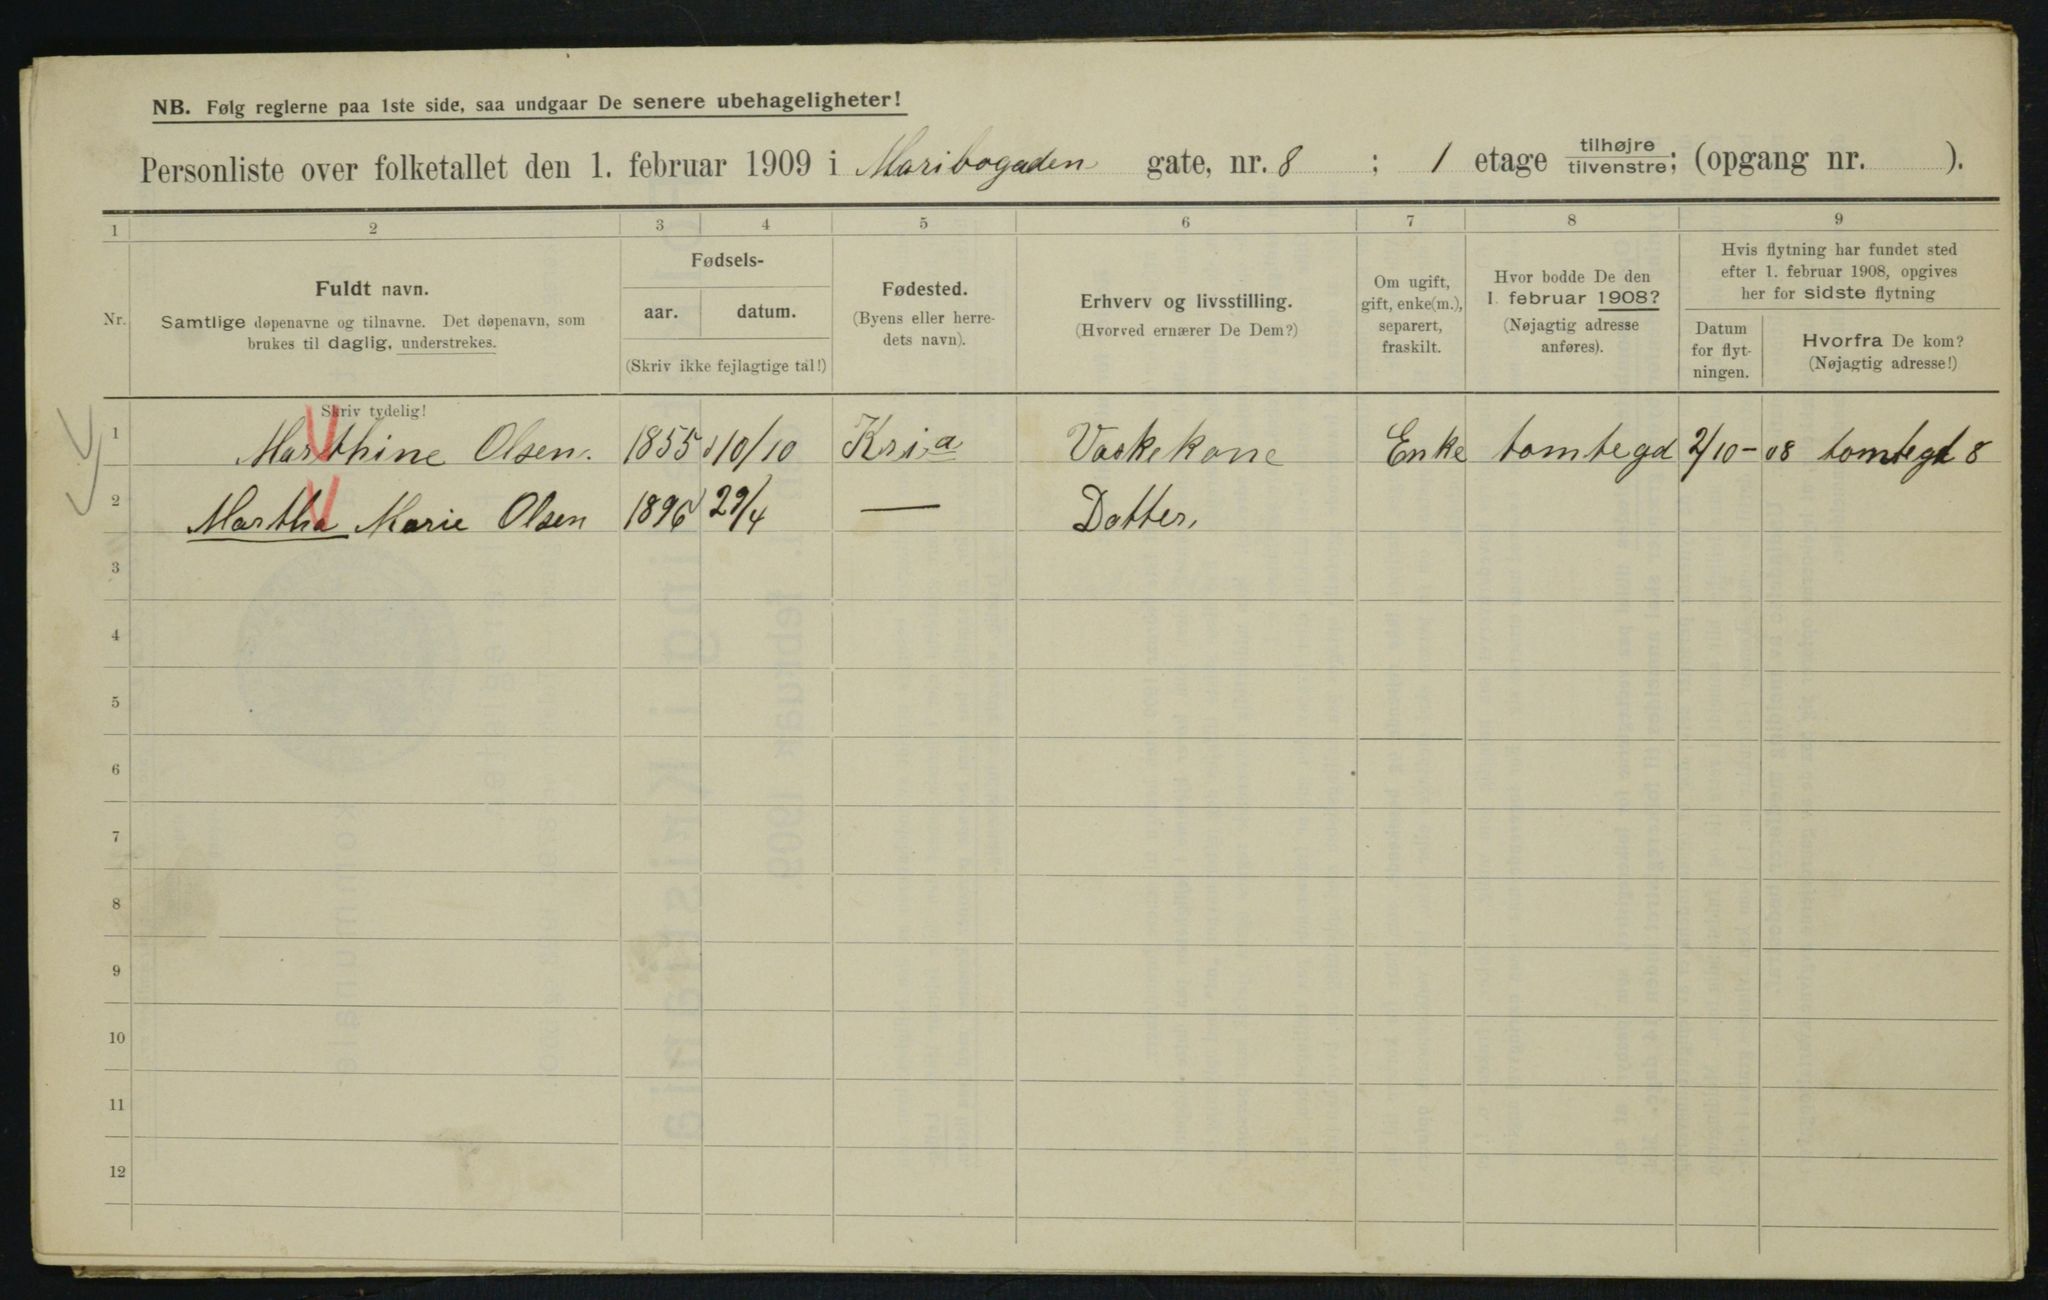 NB. Følg reglerne paa 1ste side, saa undgaar De senere ubehageligheter!
Personliste over folketallet den 1. februar 1909 i Maribogaden gate, nr. 8 ; 1 etage tilhøjre tilvenstre; (opgang nr. ).
1 2 3 4 5 6 7 8 9
Nr.
Fuldt navn.
Samtlige døpenavne og tilnavne. Det døpenavn, som
brukes til daglig, understrekes.
Fødsels-
aar. datum.
(Skriv ikke fejlagtige tal!)
Fødested.
(Byens eller herre-
dets navn).
Erhverv og livsstilling.
(Hvorved ernærer De Dem?)
Om ugift,
gift, enke(m.),
separert,
fraskilt.
Hvor bodde De den
1. februar 1908?
(Nøjagtig adresse
anføres).
Hvis flytning har fundet sted
efter 1. februar 1908, opgives
her for sidste flytning
Datum
for flyt-
ningen.
Hvorfra De kom?
(Nøjagtig adresse!)
Skriv tydelig!
1 Marthine Olsen. 1855 10/10 Kria Vaskekone Enke tomtegd 2/10-08 tomtegt 8
2 Martha Marie Olsen 1896 29/4 — Datter.
3
4
5
6
7
8
9
10
11
12